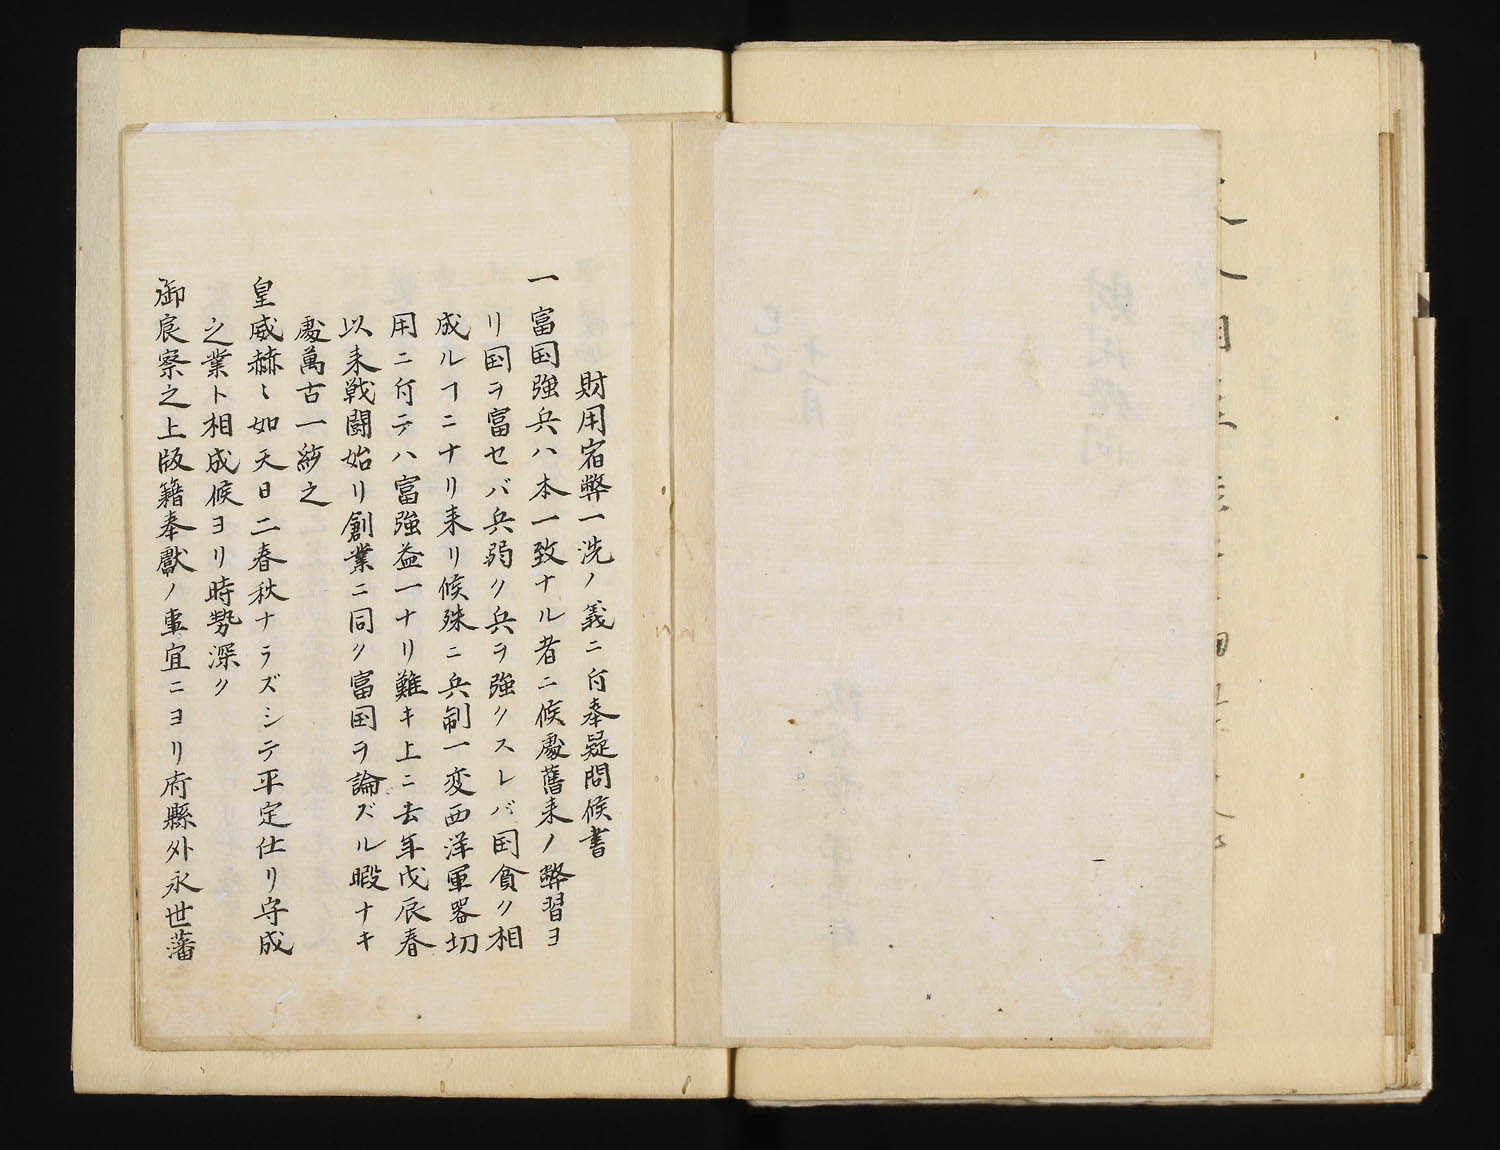 財用宿弊一洗ノ義ニ付奉疑問候書
一富国強兵ハ本一致ナル者ニ候處舊来ノ弊習ヨ
リ国ヲ富セバ兵弱ク兵ヲ強クスレバ国貧ク相
成ルヿニナリ来リ候殊ニ兵制一変西洋軍器切
用ニ付テハ富強益一ナリ難キ上ニ去年戊辰春
以来戦闘始リ創業ニ同ク富国ヲ論ズル暇ナキ
處萬古一紗之
皇威赫〻如天日二春秋ナラズシテ平定仕リ守成
之業ト相成候ヨリ時勢深ク
御宸察之上版籍奉獻ノ事宜ニヨリ府縣外永世藩